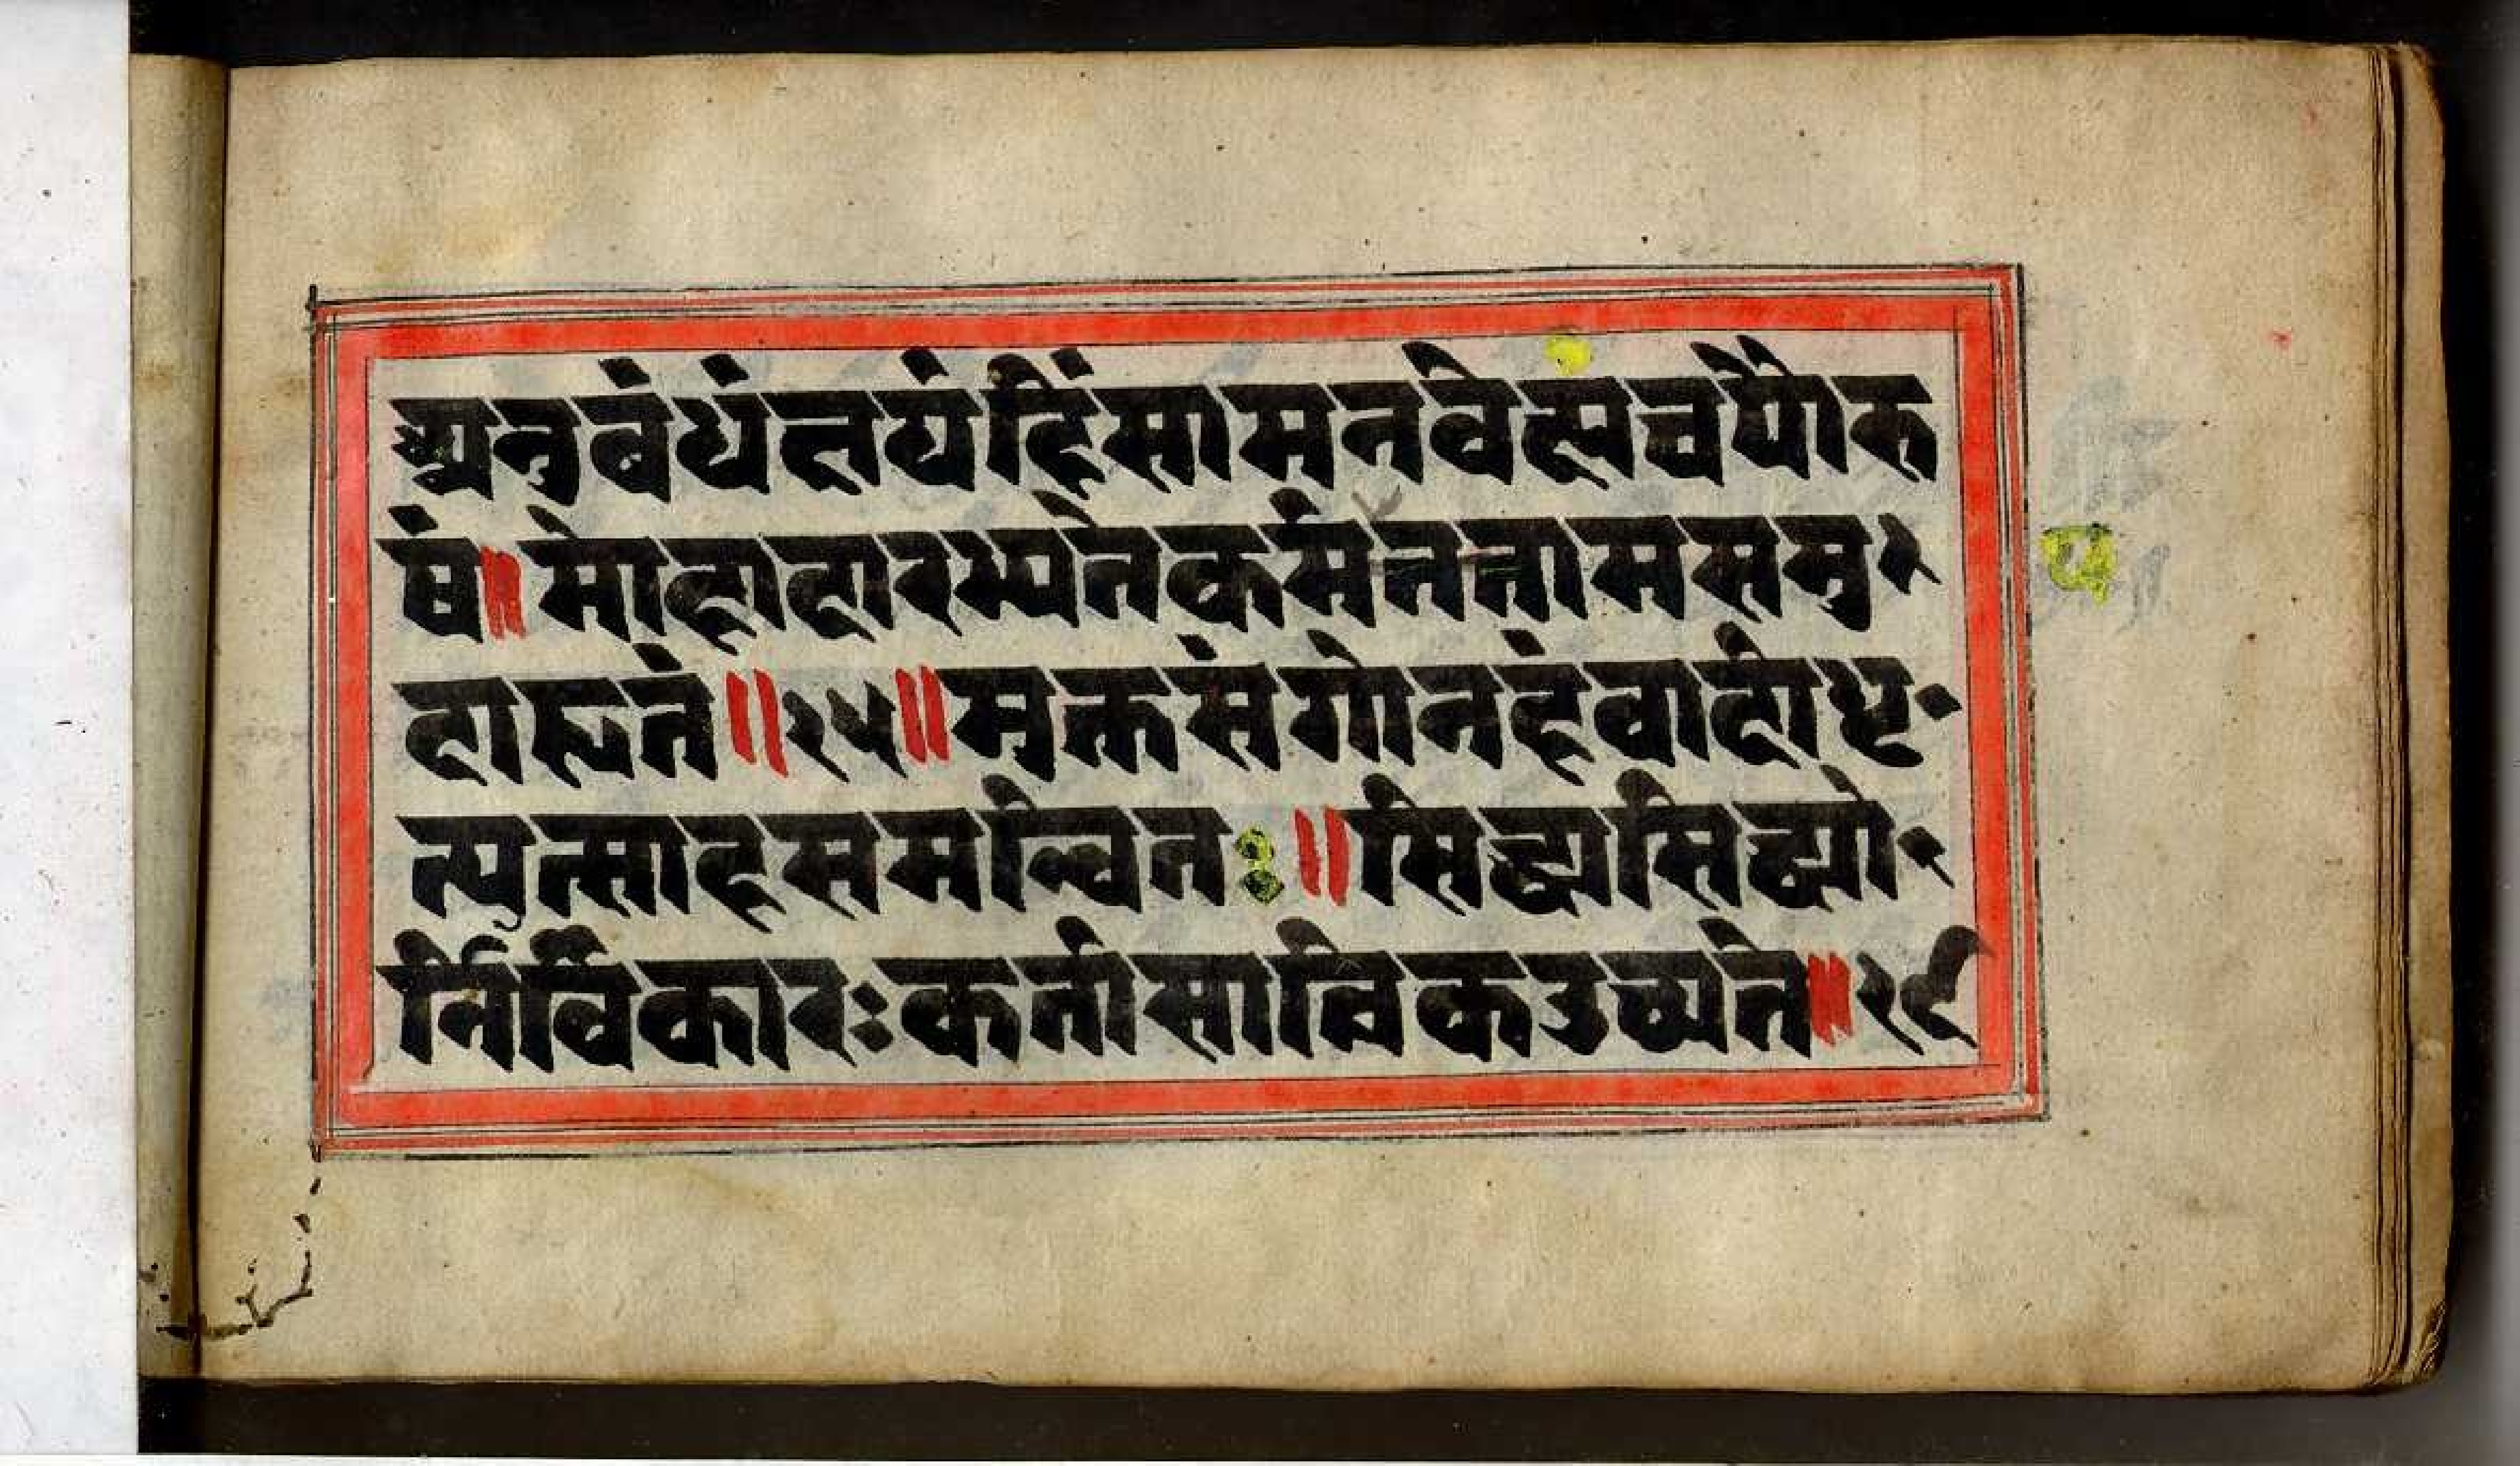 अनुबंधंक्षयेहिंसामनवेक्ष्यचपौरु
षं॥मोहादारभ्यतेकर्मतत्तामसमु
दाहृतं॥२५॥मुक्तसंगोनहंवादीधृ
त्युत्साहसमन्वितः॥सिद्ध्यसिद्ध्यो
र्निर्विकारःकर्तासात्विकउच्यते॥२६